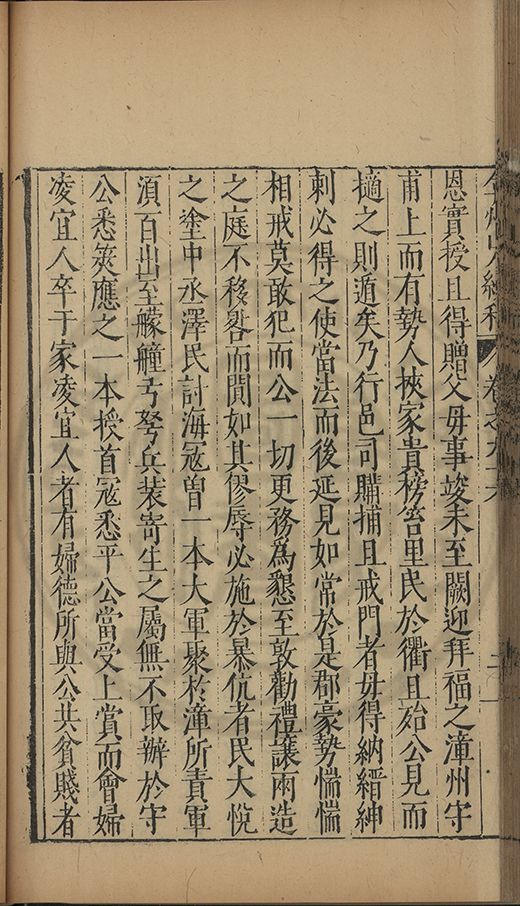 恩實授且得贈父母事竣未至闕迎拜福之漳州守
甫上而有勢人挾家貴榜笞里民於衢且殆公見而
擿之則遁矣乃行邑司購捕且戒門者毋得納縉紳
刺必得之使當法而後延見如常於是郡豪勢惴惴
相戒莫敢犯而公一切更務爲懇至敦勸禮讓兩造
之庭不移晷而間如其僇辱必施於暴伉者民大悅
之塗中丞澤民討海冦曾一本大軍聚於漳所責軍
湏百出至艨艟弓弩兵装寄生之屬無不取辦於守
公悉筴應之一本授首冦悉平公當受上賞而會婦
凌宜人卒于家凌宜人者有婦德所與公共貧賤者